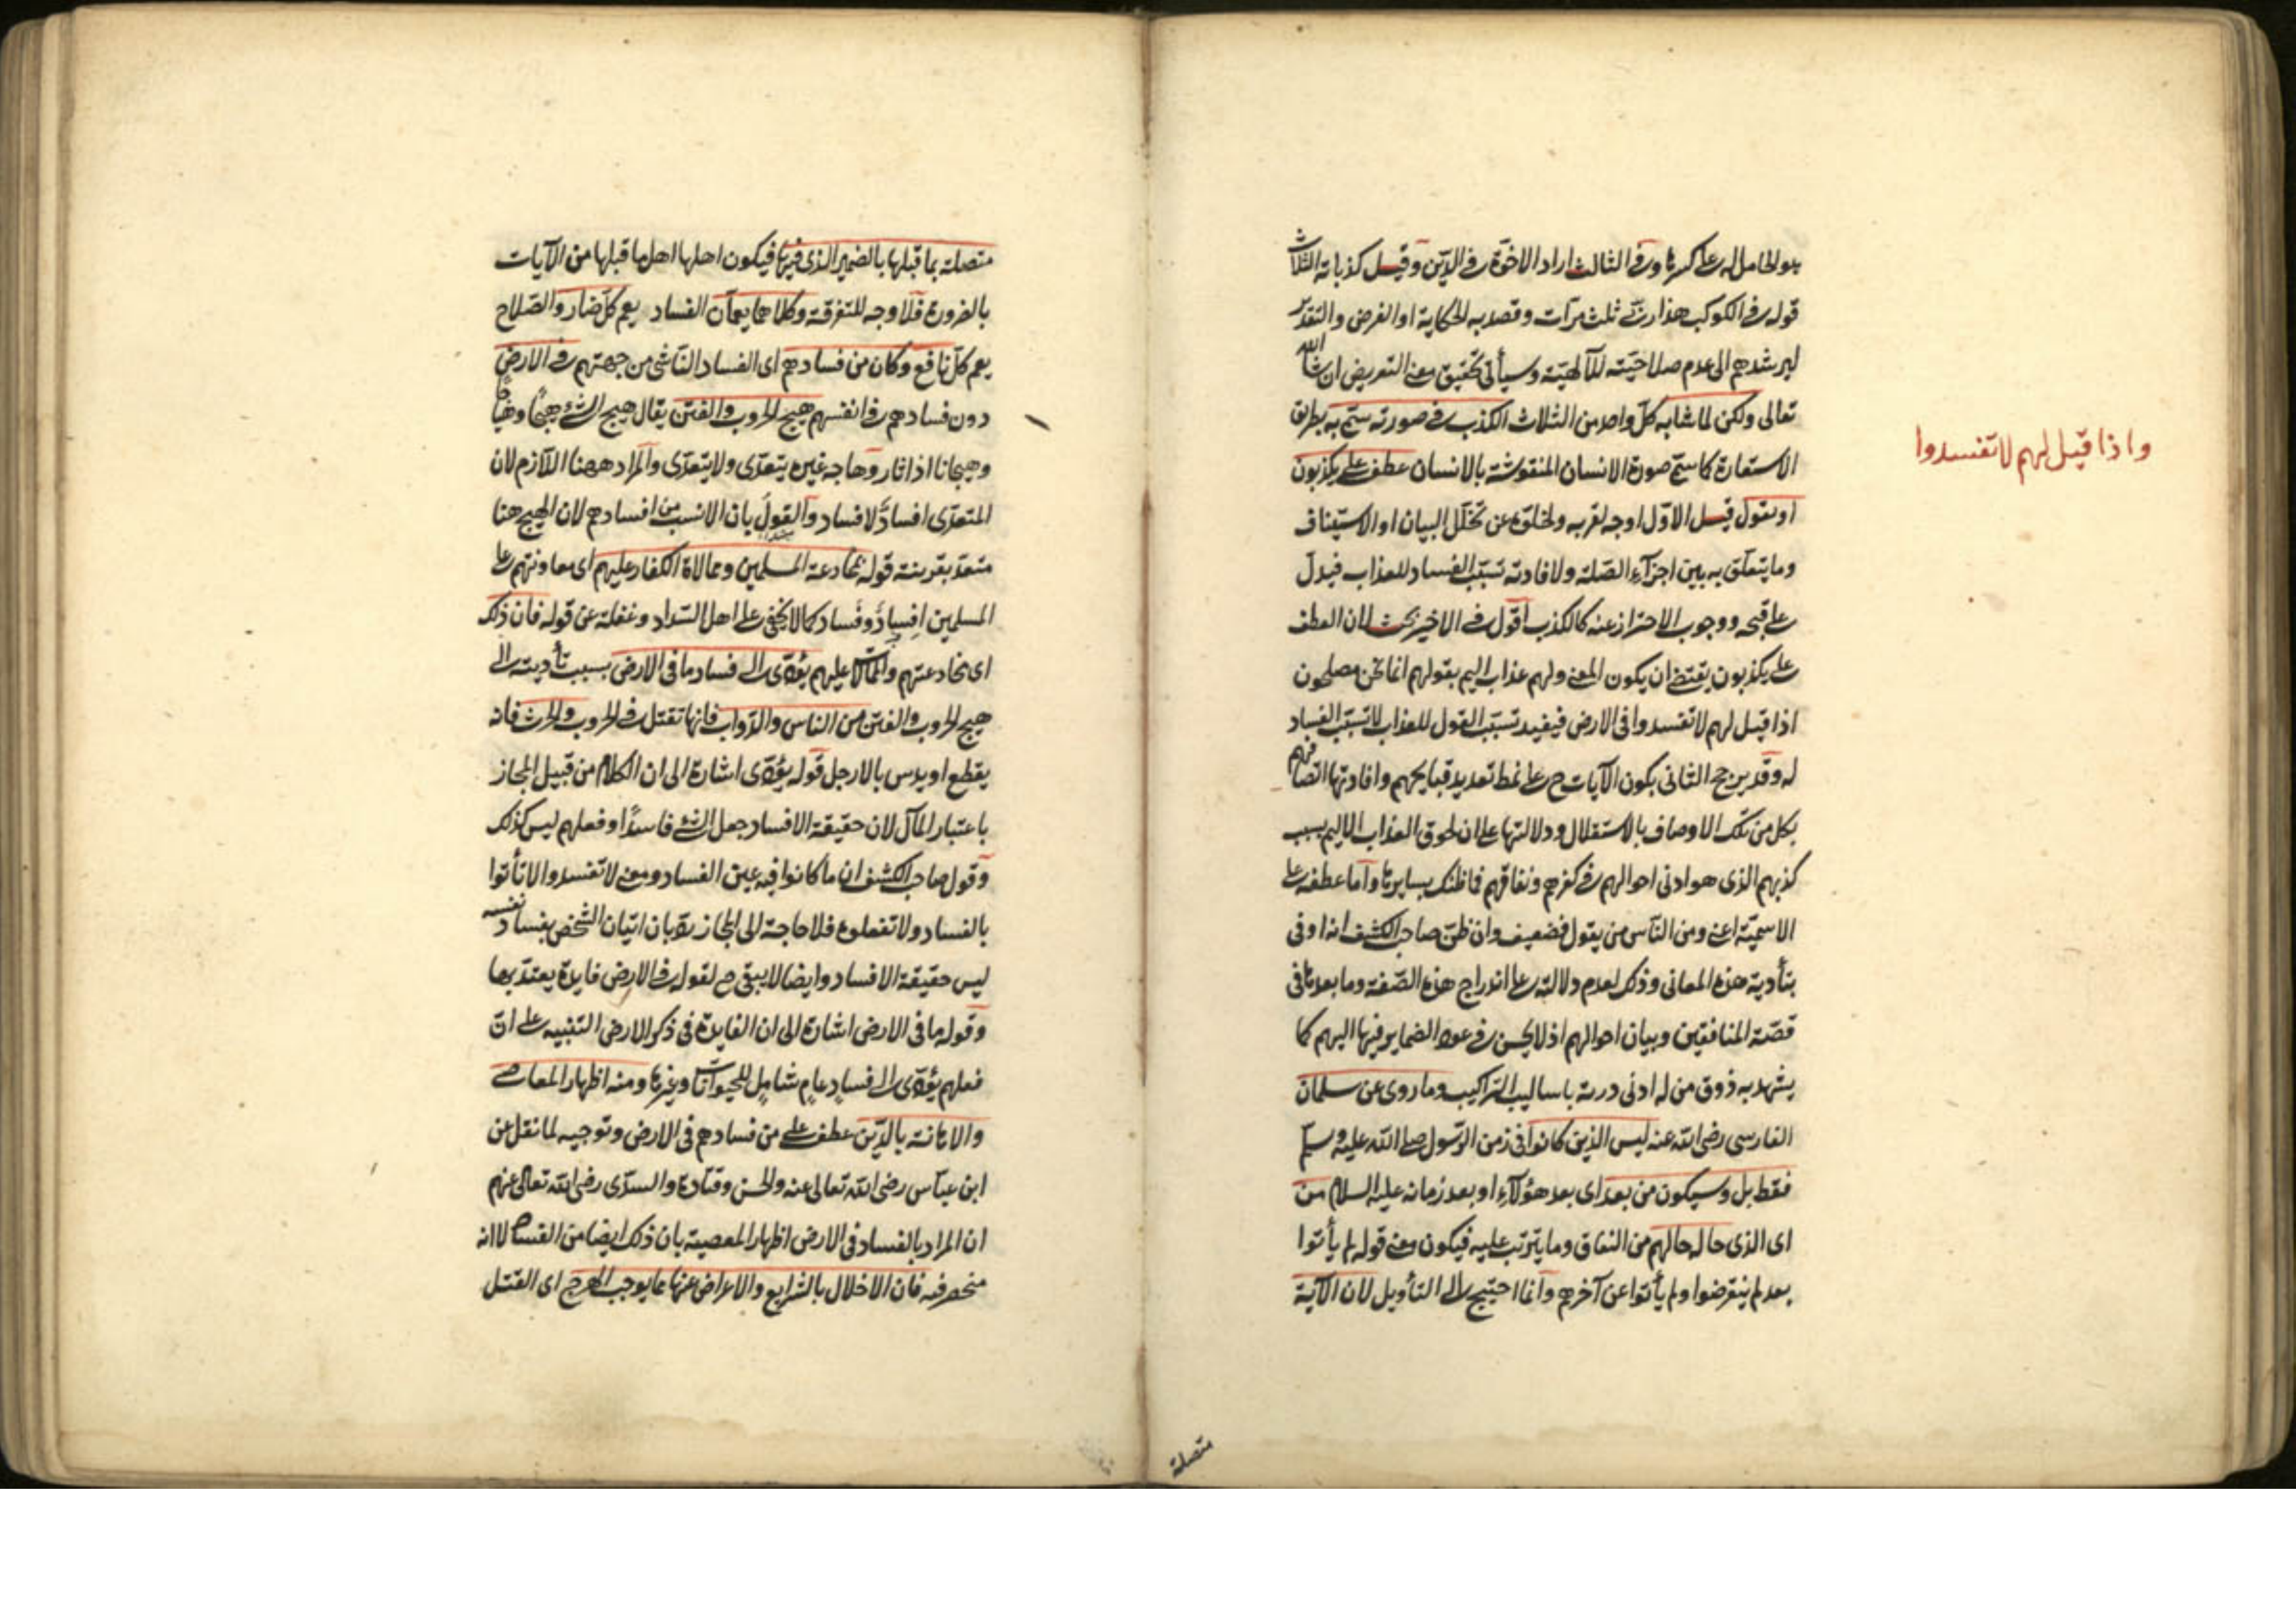 هو الحامل له على كسرها وفى الثالث اراد الاخوة فى الدين وقيل كذباته الثلاث
قوله فى الكوكب هذا ربى ثلث مرات وقصد به الحكاية او الفرض والتقدير
ليرشدهم الى عدم صلاحيته للآلهية وسيأتى تحقيق معنى التعريض ان شاء الله
تعالى ولكن لما شابه كل واحد من الثلاث الكذب فى صورته سمى به بطريق
الاستعارة كما سمى صورة الانسان المنقوشة بالانسان عطف على يكذبون
او يقول قيل الاول اوجه لقربه ولخلوه عن تخلل البيان او الاستيناف
وما يتعلق به بين اجزآء الصلة ولافادته تسبب الفساد للعذاب فيدل
على قبحه ووجوب الاحتراز عنه كالكذب اقول فى الاخير بحث لان العطف
على يكذبون يقتضى ان يكون المعنى ولهم عذاب اليم بقولهم انما نحن مصلحون
اذا قيل لهم لا تفسدوا فى الارض فيفيد تسبب القول للعذاب لا تسبب الفساد
له وقد يرجح الثانى بكون الآيات ح على نمط تعديد قبايحهم وافادتها اتصافهم
بكل من تلك الاوصاف بالاستقلال ودلالتها على ان لحوق العذاب الاليم بسبب
كذبهم الذى هو ادنى احوالهم فى كفرهم ونفاقهم فما ظنك بسايرها واما عطفه على
الاسمية اعنى ومن الناس من يقول فضعيف وان ظن صاحب الكشف انه اوفى
بتأدية هذه المعانى وذلك لعدم دلالته على اندراج هذه الصفة وما بعدها فى
قصة المنافقين وبيان احوالهم اذ لا يحسن فى عود الضماير فيها اليهم كما
يشهد به ذوق من له ادنى دربة باساليب التراكيب وما روى عن سلمان
الفارسى رضى الله عنه ليس الذين كانوا فى زمن الرسول صلى الله عليه وسلم
فقط بل وسيكون من بعد اى بعد هؤلآء او بعد زمانه عليه السلام من
اى الذى حاله حالهم من النفاق وما يترتب عليه فيكون معنى قوله لم يأتوا
بعد لم ينقرضوا ولم يأتوا عن آخرهم وانما احتيج الى التأويل لان الآية
واذا قيل لهم لا تفسدوا
متصلة
متصلة بما قبلها بالضمير الذى فيها فيكون اهلها اهل ما قبلها من الآيات
بالضرورة فلا وجه للتفرقة وكلاهما يعمان الفساد يعم كل ضار والصلاح
يعم كل نافع وكان من فسادهم اى الفساد الناشى من جهتهم فى الارض
دون فسادهم فى انفسهم هيج الحروب والفتن يقال هيج الشئ هيجًا وهياجًا
وهيجانا اذا ثار وهاجه غيره يتعدى ولا يتعدى والمراد ههنا اللازم لان
المتعدى افساد لا فساد والقول بان الانسب من افسادهم لان الهيج هنا
متعد بقرينة قوله بمخادعة المسلمين وممالاة الكفار عليهم اى معاونتهم على
المسلمين افساد وفساد كما لا يخفى على اهل السداد وغفلة عن قوله فان ذلك
اى مخادعتهم والممالاة عليهم يؤدى الى فساد ما فى الارض بسبب تأديته الى
هيج الحروب والفتن من الناس والدواب فانها تقتل فى الحروب والحرث فانه
يقطع او يدس بالارجل قوله يؤدى اشارة الى ان الكلام من قبيل المجاز
باعتبار المآل لان حقيقة الافساد جعل الشئ فاسدًا وفعلهم ليس كذلك
وقول صاحب الكشف ان ما كانوا فيه عين الفساد ومعنى لا تفسدوا لا تأتوا
بالفساد ولا تفعلوه فلا حاجة الى المجاز رد بان اتيان الشخص بفساد نفسه
ليس حقيقة الافساد وايضا لا يبقى ح لقوله فى الارض فايدة يعتد بها
وقوله ما فى الارض اشارة الى ان الفايدة فى ذكر الارض التنبيه على ان
فعلهم يؤدى الى فساد عام شامل للحيوانات وغيرها ومنه اظهار المعاصى
والاهانة بالدين عطف على من فسادهم فى الارض وتوجيه لما نقل عن
ابن عباس رضى الله تعالى عنه والحسن وقتادة والسدى رضى الله تعالى عنهم
ان المراد بالفساد فى الارض اظهار المعصية بان ذلك ايضا من الفساد لا انه
منحصر فيه فان الاخلال بالشرايع والاعراض عنها مما يوجب الهرج اى القتل